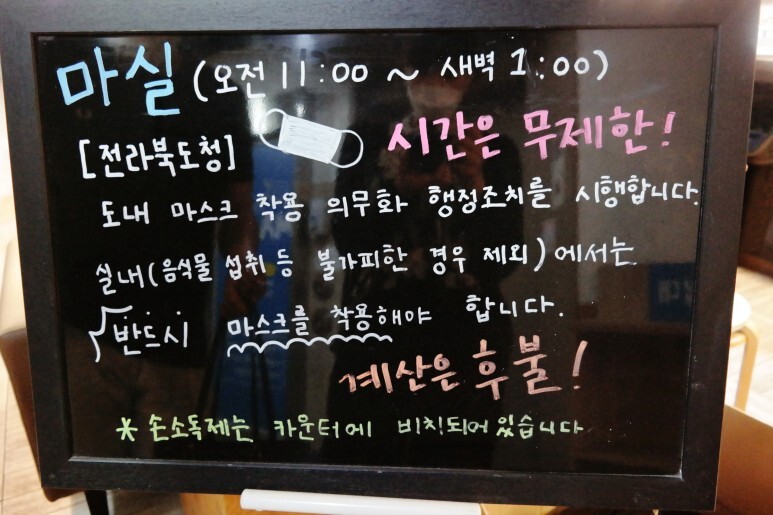 마실 (오전 11:00 ~ 새벽 1:00)
시간은 무제한!
[전라북도청]
도내 마스크 착용 의무화 행정조치를 시행합니다.
실내(음식물 섭취 등 불가피한 경우 제외)에서는
반드시 마스크를 착용해야 합니다.
계산은 후불!
* 손소독제는 카운터에 비치되어있습니다